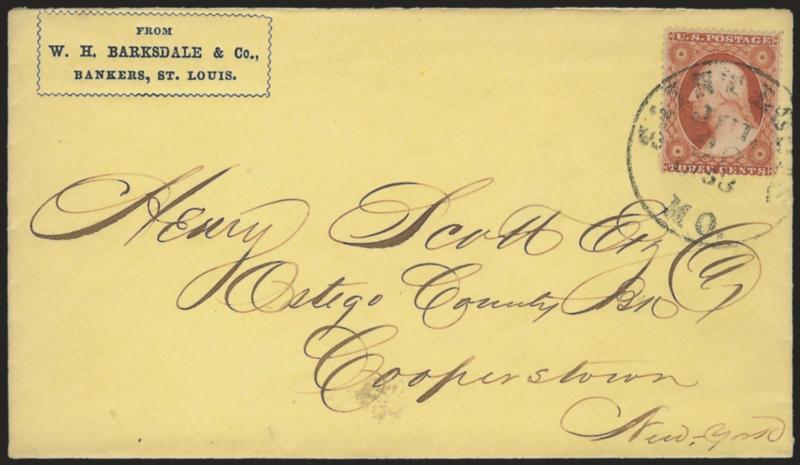 FROM
W. H. BARKSDALE & Co.,
BANKERS, ST. LOUIS.
U.S. POSTAGE
THREE CENTS
SAINT LOUIS
MO.
Henry Scott Esq Cr
Ostego County Bk
Cooperstown
New-York